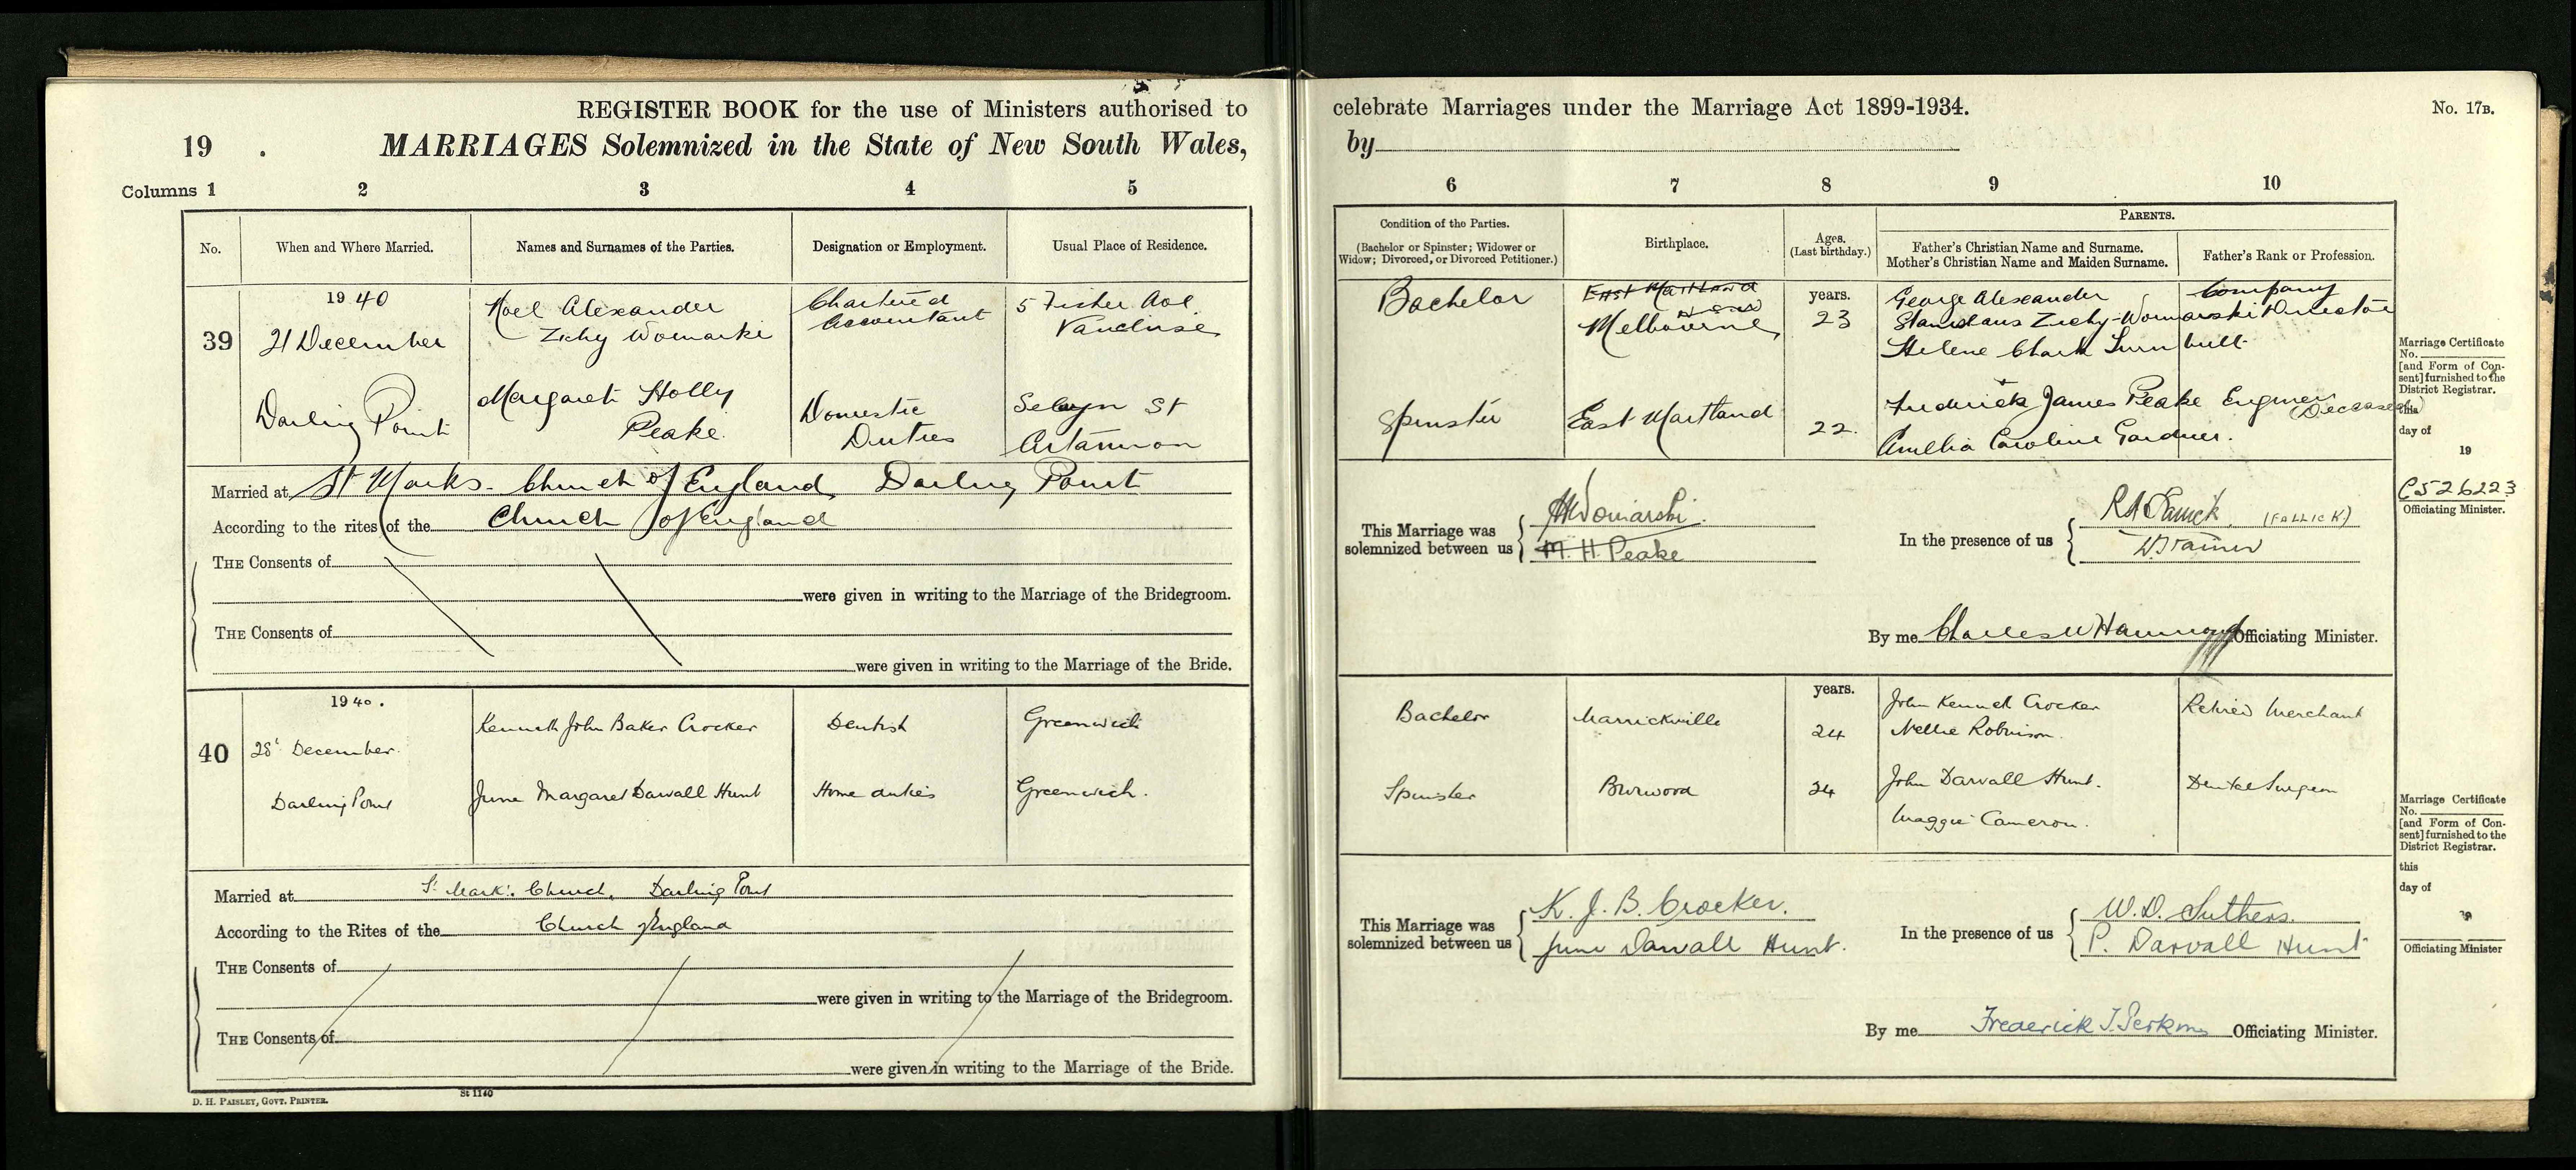 REGISTER BOOK for the use of Ministers authorised to celebrate Marriages under the Marriage Act 1899-1934.
No. 17B.
19 . MARRIAGES Solemnized in the State of New South Wales, by
Columns 1 2 3 4 5 6 7 8 9 10
No.
When and Where Married.
Names and Surnames of the Parties.
Designation or Employment.
Usual Place of Residence.
Condition of the Parties.
(Bachelor or Spinster; Widower or
Widow; Divorced, or Divorced Petitioner.)
Birthplace.
Ages.
(Last birthday.)
PARENTS.
Father's Christian Name and Surname.
Mother's Christian Name and Maiden Surname.
Father's Rank or Profession.
39
1940
21 December
Darling Point
Noel Alexander
Zichy Woinarski
Chartered
Accountant
5 Fisher Ave.
Vaucluse
Bachelor
East Maitland
NSW
Melbourne
years.
23
George Alexander
Stanislaus Zichy-Woinarski
Helene Clark Turnbull
Company
Director
Margaret Holly
Peake
Domestic
Duties
Selwyn St
Artarmon
Spinster
East Maitland
22.
Frederick James Peake
Amelia Caroline Gardner.
Engineer
(Deceased)
Married at St Marks - Church of England, Darling Point
According to the rites of the Church of England
THE Consents of
were given in writing to the Marriage of the Bridegroom.
THE Consents of
were given in writing to the Marriage of the Bride.
This Marriage was
solemnized between us
Woinarski.
M. H. Peake
In the presence of us
(FALLICK)
By me Charles W Hammond Officiating Minister.
Marriage Certificate
No.
[and Form of Con-
sent] furnished to the
District Registrar.
this
day of
19
C526223
Officiating Minister.
40
1940.
28' December.
Darling Point
Kenneth John Baker Crocker
Dentist
Greenwich
Bachelor
Marrickville
years.
24
John Kenneth Crocker
Nellie Robinson.
Retired Merchant
June Margaret Darvall Hunt
Home duties
Greenwich.
Spinster
Burwood
24
John Darvall Hunt.
Maggie Cameron.
Dental Surgeon
Married at St Mark's Church, Darling Point
According to the Rites of the Church of England
THE Consents of
were given in writing to the Marriage of the Bridegroom.
THE Consents of
were given in writing to the Marriage of the Bride.
This Marriage was
solemnized between us
K. J. B. Crocker.
June Darvall Hunt.
In the presence of us
W. D. Suthers.
P. Darvall Hunt
By me Frederick Officiating Minister.
Marriage Certificate
No.
[and Form of Con-
sent] furnished to the
District Registrar.
this
day of
19
Officiating Minister
D. H. PAISLEY, GOVT. PRINTER.
St 1140